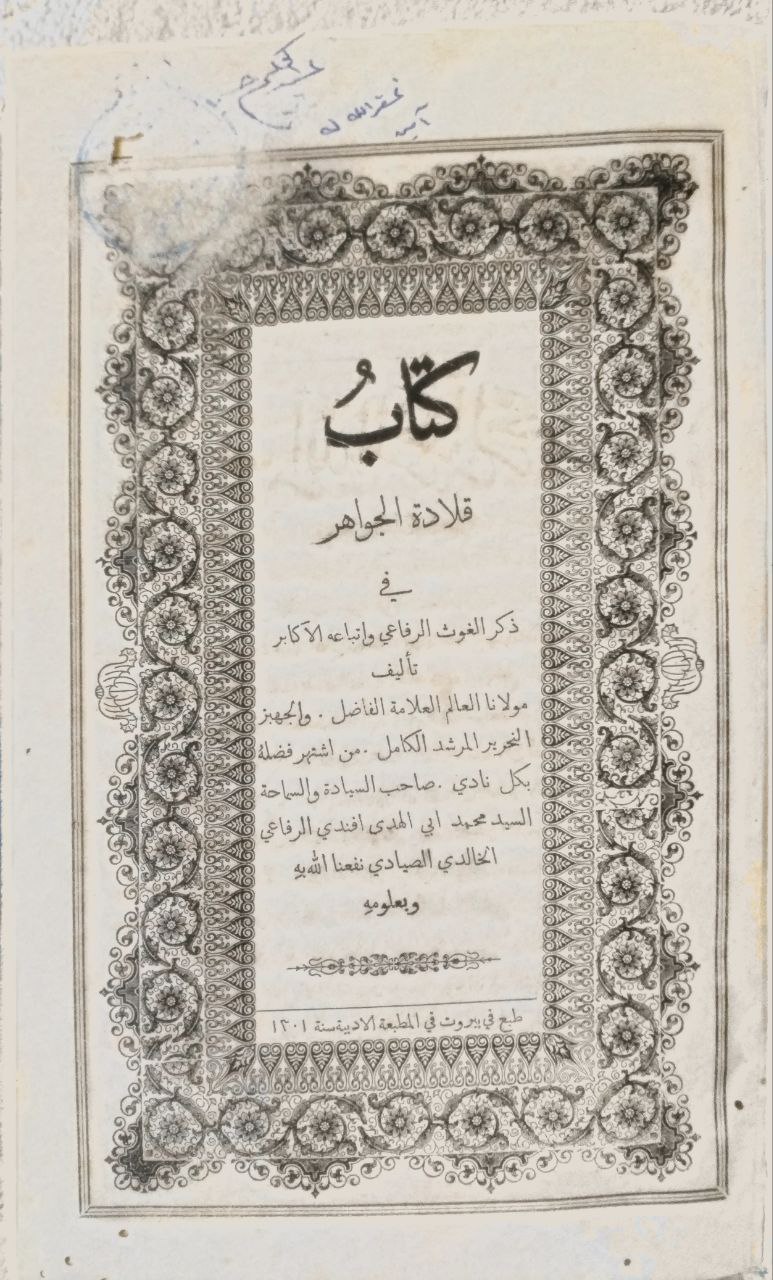 غفر الله له
آمين
كتابُ
قلادة الجواهر
في
ذكر الغوث الرفاعي واتباعه الاكابر
تأليف
مولانا العالم العلامة الفاضل . والجهبز
النحرير المرشد الكامل . من اشتهر فضلهُ
بكل نادي . صاحب السيادة والسماحة
السيد محمد ابي الهدى افندي الرفاعي
الخالدي الصيادي نفعنا الله بهِ
وبعلومهِ
طبع في بيروت في المطبعة الادبية سنة ١٣٠١